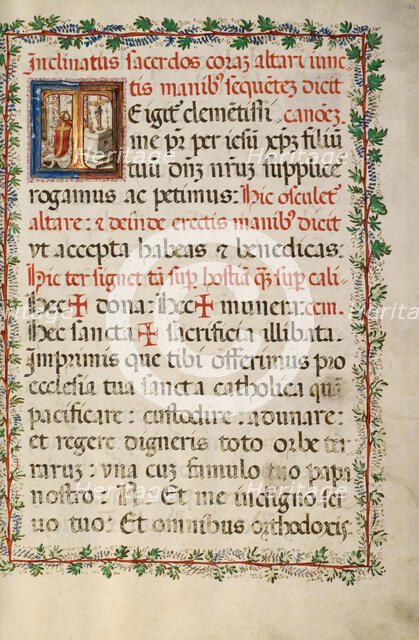 Inclinatus sacerdos coraz altari iunc
tis manib' sequētez dicit
canōez.
T E igit' clemētissi
me pr̄ per iesū xp̄z filiū
tuū dn̄z nr̄uz supplice
rogamus ac petimus: Hic osculet'
altare: & deinde erectis manib' dicit
vt accepta habeas & benedicas:
Hic ter signet tā sup' hostiā q̄z sup' cali
Hec ✠ dona: Hec ✠ munera: cem.
Hec sancta ✠ sacrificia illibata.
Imprimis que tibi offerimus pro
ecclesia tua sancta catholica quā
pacificare: custodire: adunare:
et regere digneris toto orbe ter
raruz: vna cuz famulo tuo papa
nostro: N. Et me indigno ser
uo tuo: Et omnibus orthodoxis